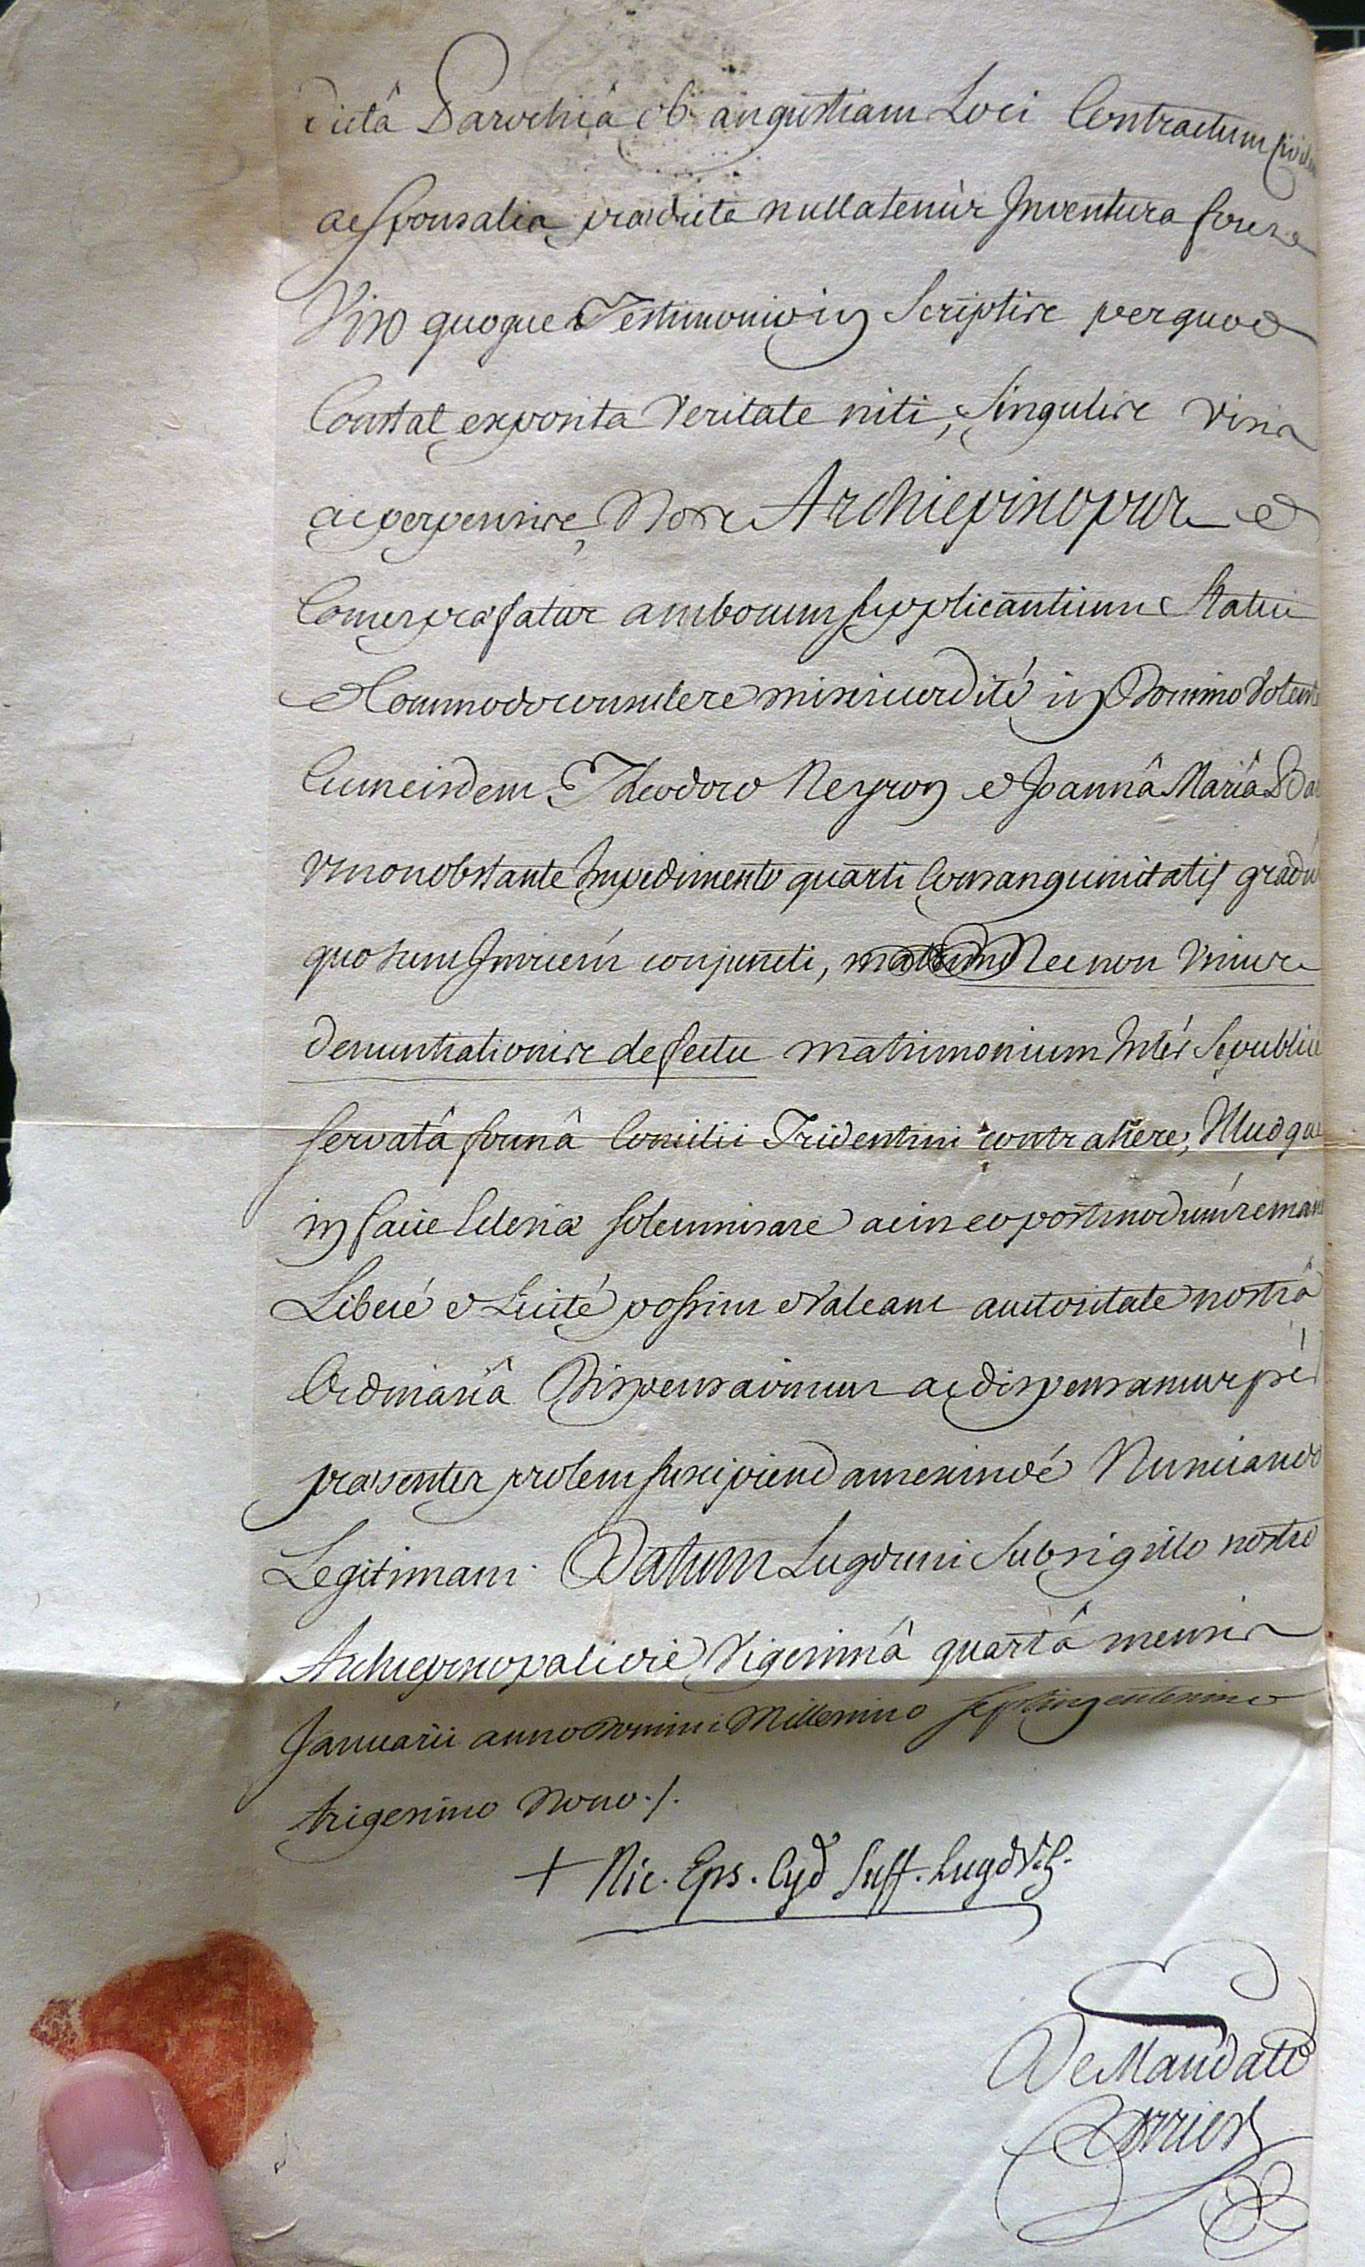 dictâ Parochiâ ob angustiam Loci Contractum
ac sponsalia prædicta nullatenùs Inventura foret
Viso quoque Testimonio in Scriptis per quod
Constat exposita Veritate niti, singulis visis
ac perpensis, Nos Archiepiscopus et
Comes præfatus amborum supplicantium Statui
et Commodo consulere misericordité in Domino Volentes
Cum eisdem Theodoro Neyron et Joannâ Mariâ
Ut non obstante Impedimento quarti Consanguinitatis gradûs
quo sunt Invicem conjuncti, Nec non Unius
denuntiationis defectu matrimonium Intér Se publicé
servatâ formâ Concilii Tridentini contrahere, Illudque
in facie Eclesiæ solemnisare ac in eo postmodùm remanere
Liberé et Licité possint et Valeant autoritate nostrâ
Ordinariâ Dispensavimus ac dispensamus per
præsentes prolem suscipiendam exindé Nunciando
Legitimam. Datum Lugduni sub sigillo nostro
Archiepiscopali die Vigesimâ quartâ mensis
Januarii anno Domini Millesimo septingentesimo
trigesimo Nono ./.
+ Nic. Eps. Cyd Suff. Lugd V.G.
De Mandato